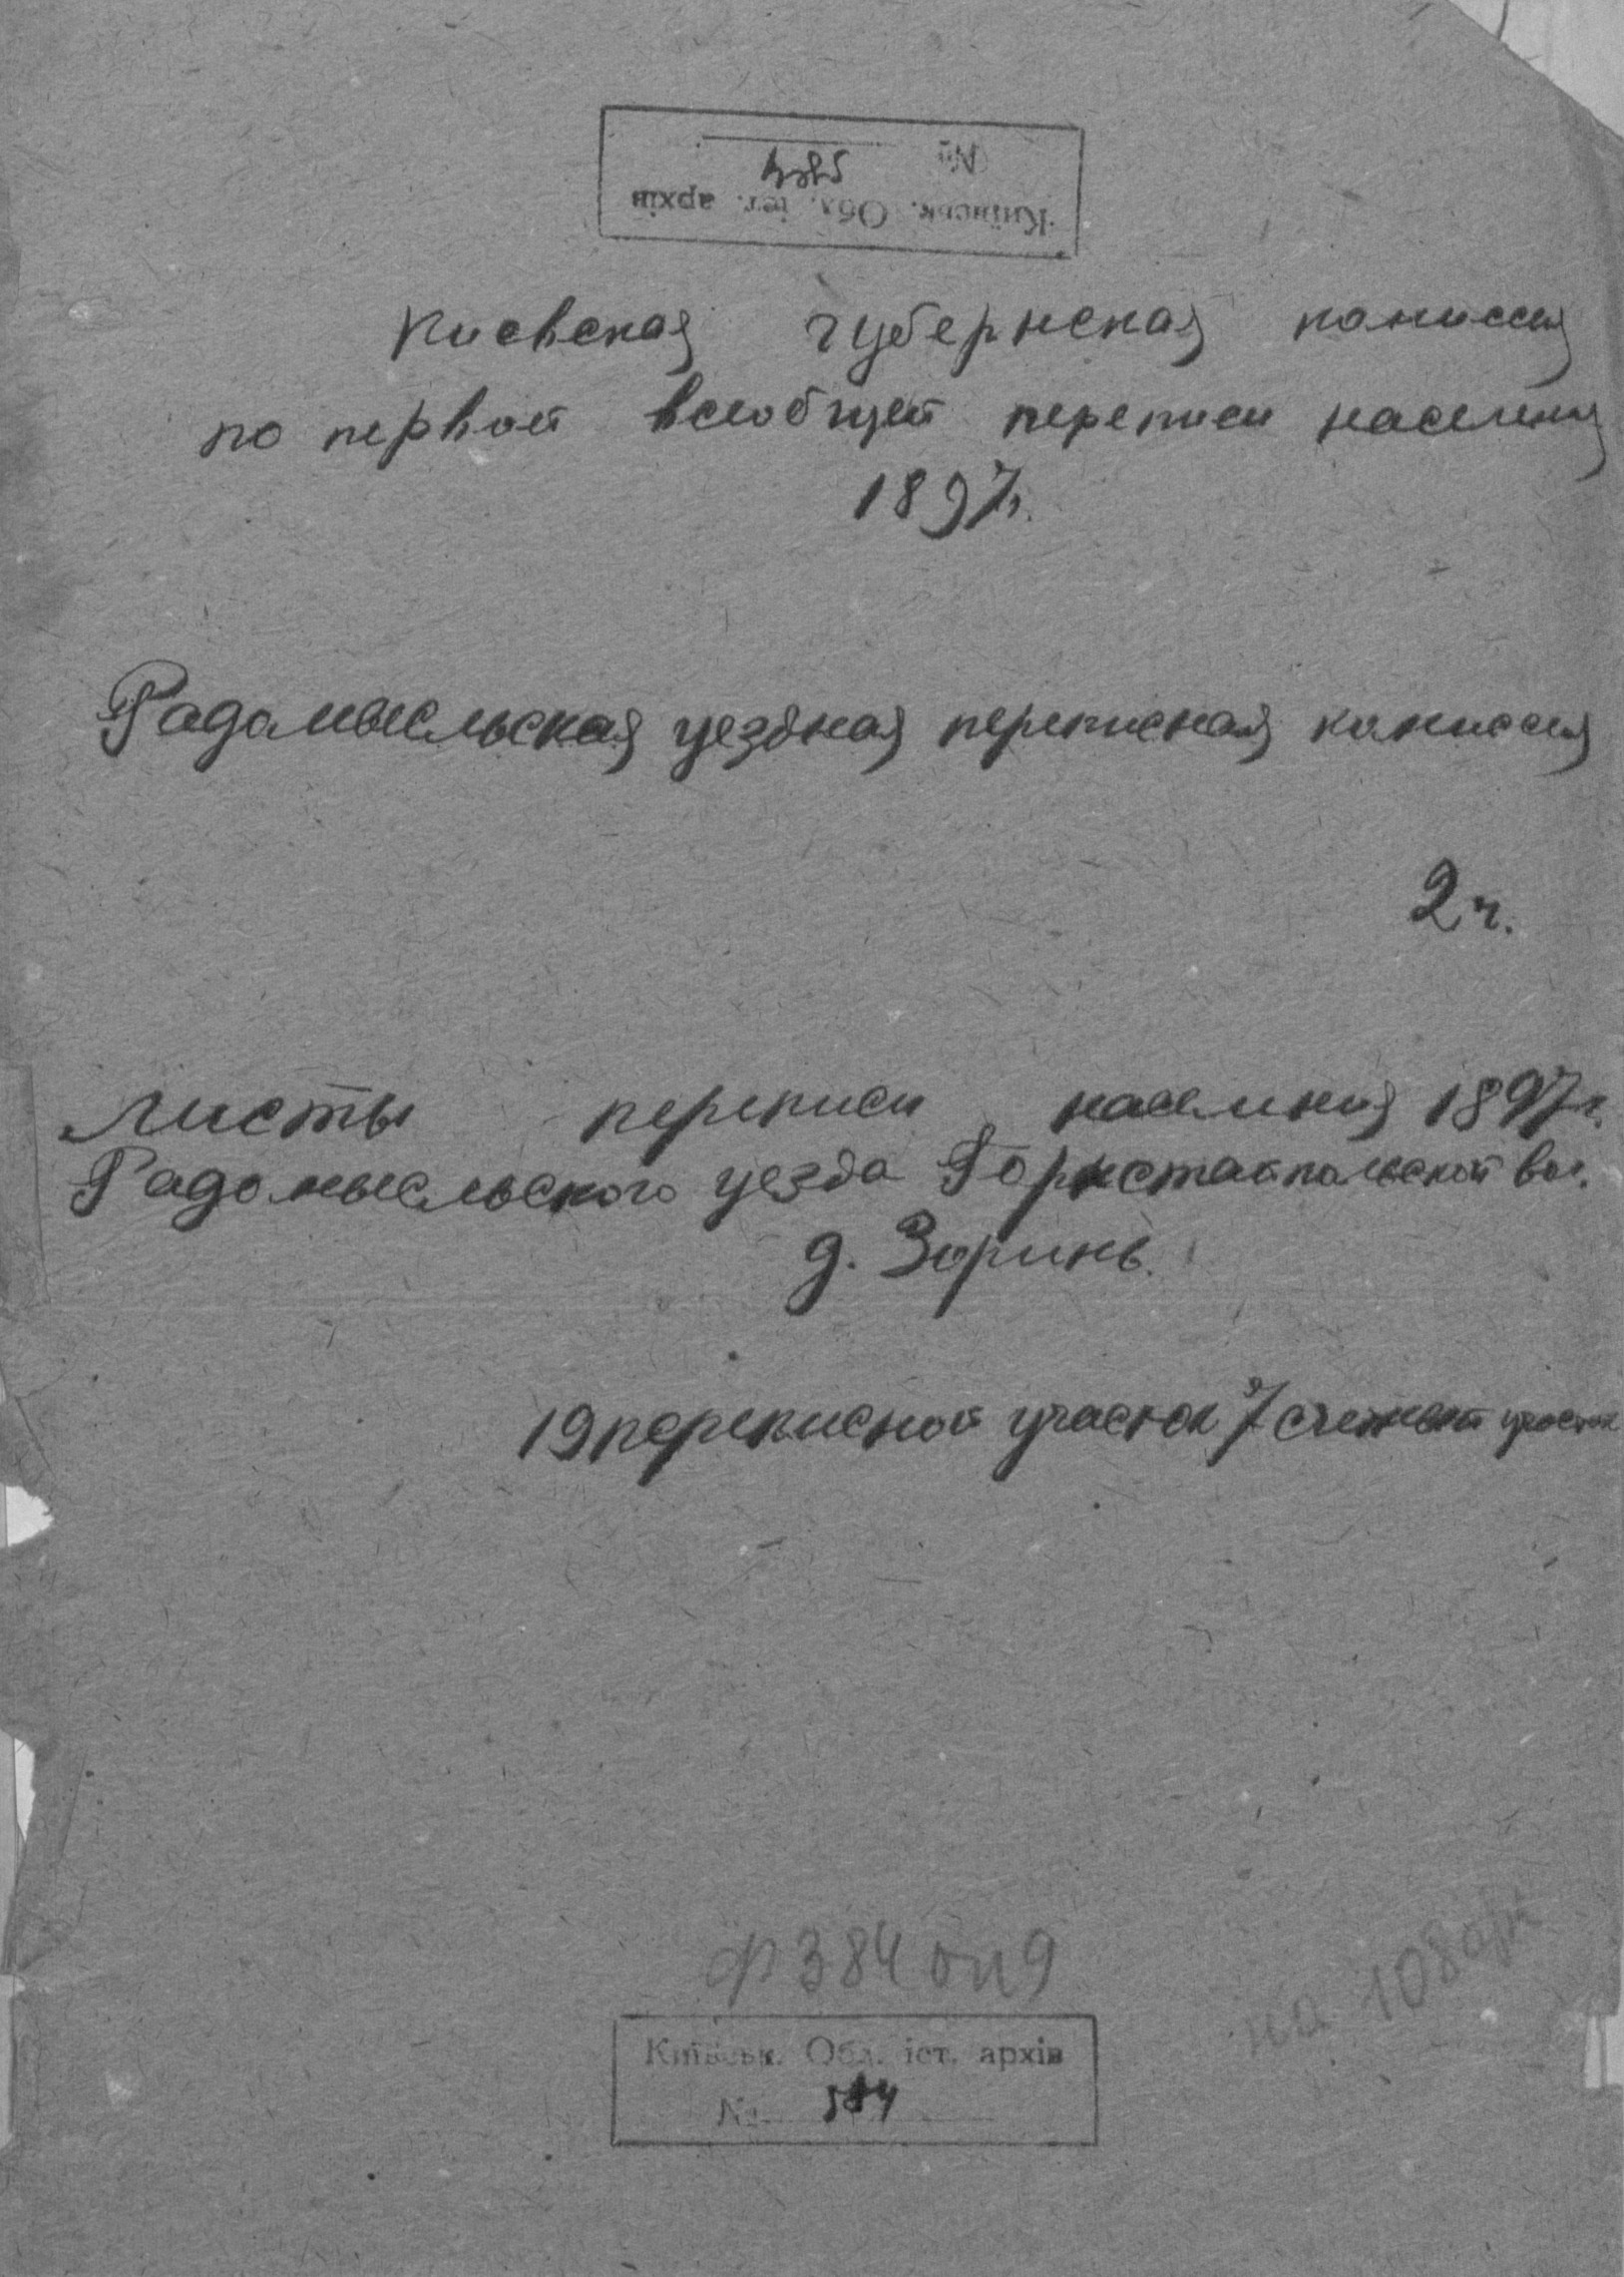 Київськ. Обл. іст. архів
№ 584
Киевская губернская комиссия
по первой всеобщей переписи населения
1897г.
Радомысльская уездная переписная комиссия
2 ч.
Листы переписи населения 1897г.
Радомысльского уезда Горностайпольской вол.
д. Зоринь.
19 переписной участок 7 счетный участок
Ф 384 оп 9
на 108 арк
Київськ. Обл. іст. архів
№ 584